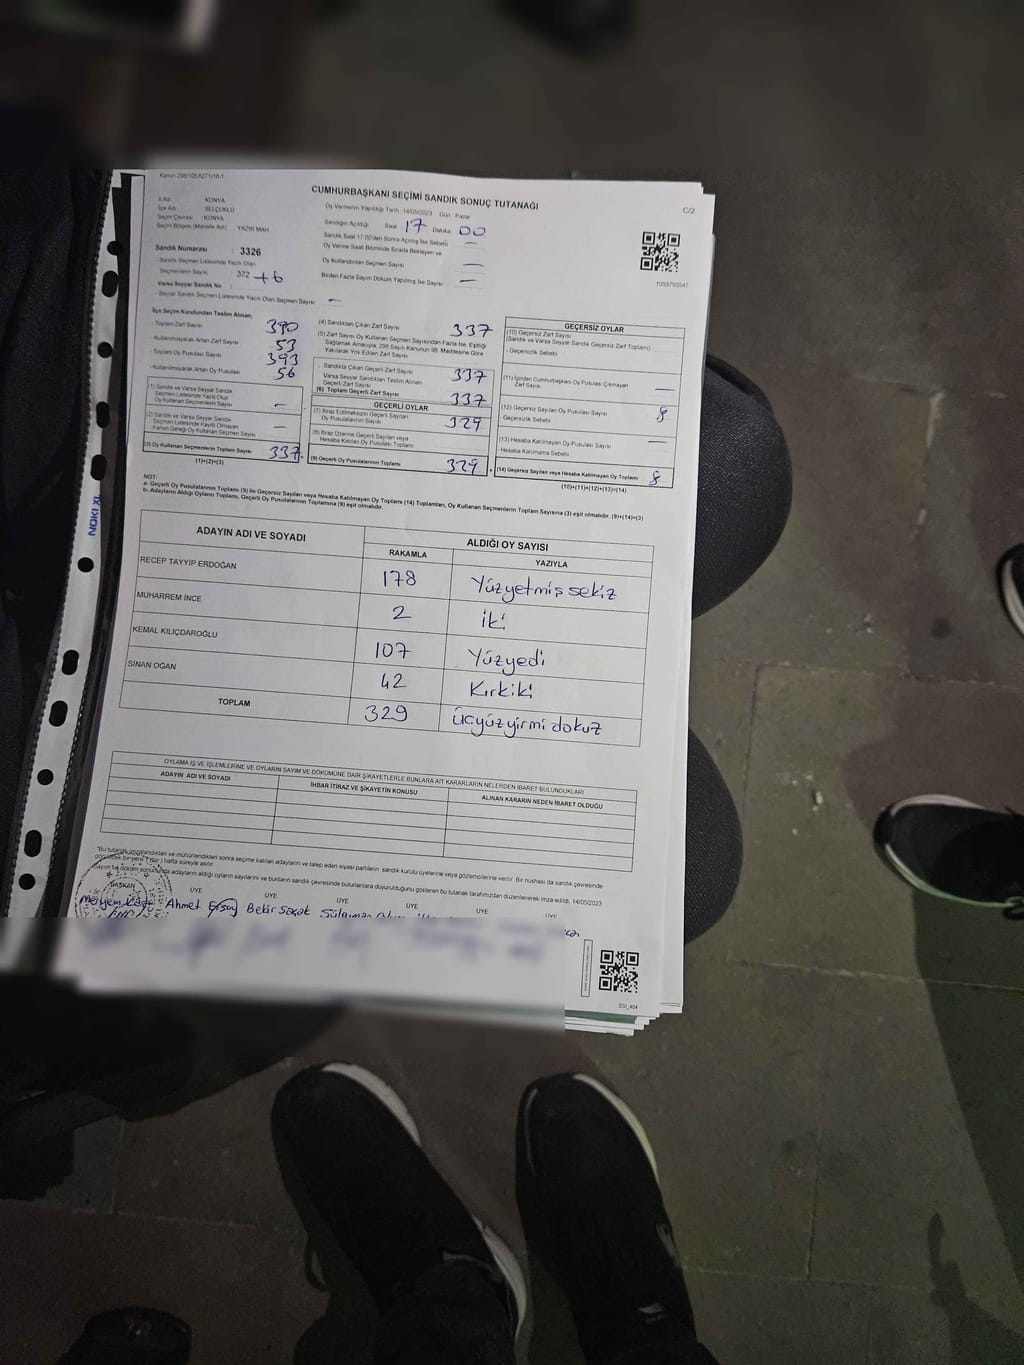 Kanun 298/105,6271/18-1
CUMHURBAŞKANI SEÇİMİ SANDIK SONUÇ TUTANAĞI
C/2
İl Adı : KONYA
İlçe Adı : SELÇUKLU
Seçim Çevresi : KONYA
Seçim Bölgesi (Mahalle Adı) YAZIR MAH
Oy Vermenin Yapıldığı Tarih 14/05/2023 Gün Pazar
Sandığın Açıldığı Saat 17 Dakika 00
Sandık Saat 17:00'den Sonra Açılmış İse Sebebi —
Oy Verme Saati Bitiminde Sırada Bekleyen ve
Oy Kullandırılan Seçmen Sayısı —
Birden Fazla Sayım Döküm Yapılmış İse Sayısı : —
Sandık Numarası : 3326
- Sandık Seçmen Listesinde Yazılı Olan
Seçmenlerin Sayısı : 372 +6
Varsa Seyyar Sandık No :
- Seyyar Sandık Seçmen Listesinde Yazılı Olan Seçmen Sayısı : —
1093793547
İlçe Seçim Kurulundan Teslim Alınan;
- Toplam Zarf Sayısı 390
- Kullanılmayarak Artan Zarf Sayısı 53
- Toplam Oy Pusulası Sayısı 393
- Kullanılmayarak Artan Oy Pusulası 56
(1) Sandık ve Varsa Seyyar Sandık
Seçmen Listesinde Yazılı Olup
Oy Kullanan Seçmenlerin Sayısı —
(2) Sandık ve Varsa Seyyar Sandık
Seçmen Listesinde Kayıtlı Olmayan
Kanun Gereği Oy Kullanan Seçmen Sayısı —
(3) Oy Kullanan Seçmenlerin Toplam Sayısı 337
(1)+(2)=(3)
(4) Sandıktan Çıkan Zarf Sayısı 337
(5) Zarf Sayısı Oy Kullanan Seçmen Sayısından Fazla İse, Eşitliği
Sağlamak Amacıyla, 298 Sayılı Kanunun 98. Maddesine Göre
Yakılarak Yok Edilen Zarf Sayısı
- Sandıkta Çıkan Geçerli Zarf Sayısı 337
Varsa Seyyar Sandıktan Teslim Alınan
Geçerli Zarf Sayısı
(6) Toplam Geçerli Zarf Sayısı 337
GEÇERLİ OYLAR
(7) İtiraz Edilmeksizin Geçerli Sayılan
Oy Pusulası Sayısı 329
(8) İtiraz Üzerine Geçerli Sayılan veya
Hesaba Katılan Oy Pusulası Toplamı
(9) Geçerli Oy Pusulalarının Toplamı 329
GEÇERSİZ OYLAR
(10) Geçersiz Zarf Sayısı
(Sandık ve Varsa Seyyar Sandık Geçersiz Zarf Toplamı)
- Geçersizlik Sebebi
(11) İçinden Cumhurbaşkanı Oy Pusulası Çıkmayan
Zarf Sayısı —
(12) Geçersiz Sayılan Oy Pusulası Sayısı 8
Geçersizlik Sebebi
(13) Hesaba Katılmayan Oy Pusulası Sayısı —
- Hesaba Katılmama Sebebi
(14) Geçersiz Sayılan veya Hesaba Katılmayan Oy Toplamı 8
(10)+(11)+(12)+(13)=(14)
NOT:
a- Geçerli Oy Pusulalarının Toplamı (9) ile Geçersiz Sayılan veya Hesaba Katılmayan Oy Toplamı (14) Toplamları, Oy Kullanan Seçmenlerin Toplam Sayısına (3) eşit olmalıdır. (9)+(14)=(3)
b- Adayların Aldığı Oyların Toplamı, Geçerli Oy Pusulalarının Toplamına (9) eşit olmalıdır.
NOKI XL
ADAYIN ADI VE SOYADI ALDIĞI OY SAYISI
RAKAMLA YAZIYLA
RECEP TAYYİP ERDOĞAN 178 Yüzyetmiş sekiz
MUHARREM İNCE 2 iki
KEMAL KILIÇDAROĞLU 107 Yüzyedi
SİNAN OĞAN 42 Kırkiki
TOPLAM 329 üçyüzyirmi dokuz
OYLAMA İŞ VE İŞLEMLERİNE VE OYLARIN SAYIM VE DÖKÜMÜNE DAİR ŞİKAYETLERLE BUNLARA AİT KARARLARIN NELERDEN İBARET BULUNDUKLARI
ADAYIN ADI VE SOYADI İHBAR İTİRAZ VE ŞİKAYETİN KONUSU ALINAN KARARIN NEDEN İBARET OLDUĞU
"Bu tutanak imzalandıktan ve mühürlendikten sonra seçime katılan adayların ve talep eden siyasi partilerin sandık kurulu üyelerine veya gözlemcilerine verilir. Bir nüshası da sandık çevresinde
görülecek bir yere 1 (Bir) hafta süreyle asılır.
sonucunda adayların aldığı oyların sayılarını ve bunların sandık çevresinde bulunanlara duyurulduğunu gösteren bu tutanak tarafımızdan düzenlenerek imza edildi. 14/05/2023
BAŞKAN ÜYE ÜYE ÜYE ÜYE ÜYE ÜYE
Meryem Ahmet Ersoy Bekir Süleyman
SSI_404